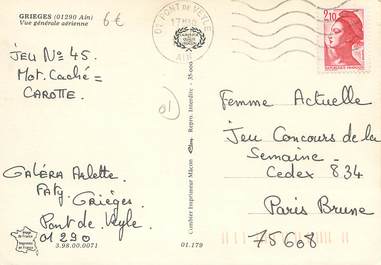 GRIEGES (01290 Ain)
Vue générale aérienne
6€
01 PONT DE VEYLE
17H
AIN
2,10
JEU N° 45.
Mot. Caché =
CAROTTE.
01
Femme Actuelle
Jeu Concours de la
Semaine -
Cedex 834
Paris Brune
75608
GALÉRA Arlette.
Grièges.
Pont de Veyle
01290
Combier Imprimeur Mâcon
Repro. Interdite - 35-000
3.98.00.0071
01.179